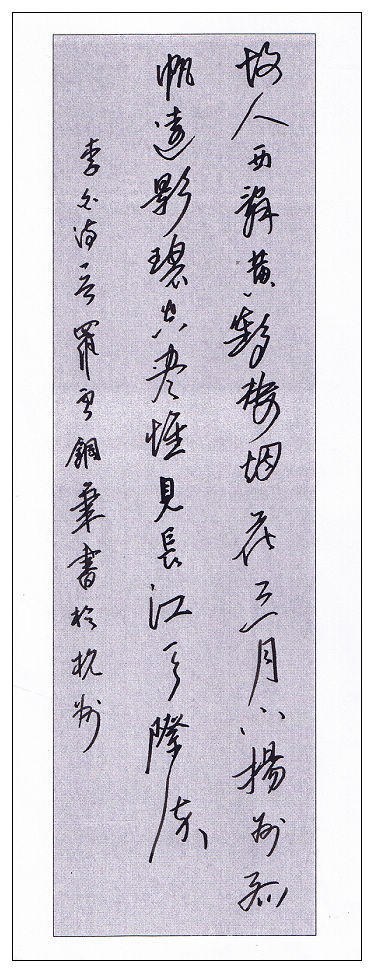 故人西辭黄鶴樓烟花三月下揚州孤
帆遠影碧空尽惟見長江天際流
李白诗一首鋼筆書於杭州